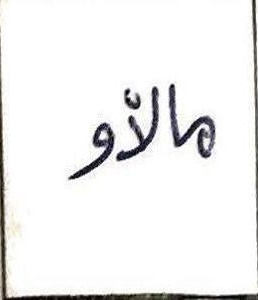 مالاو